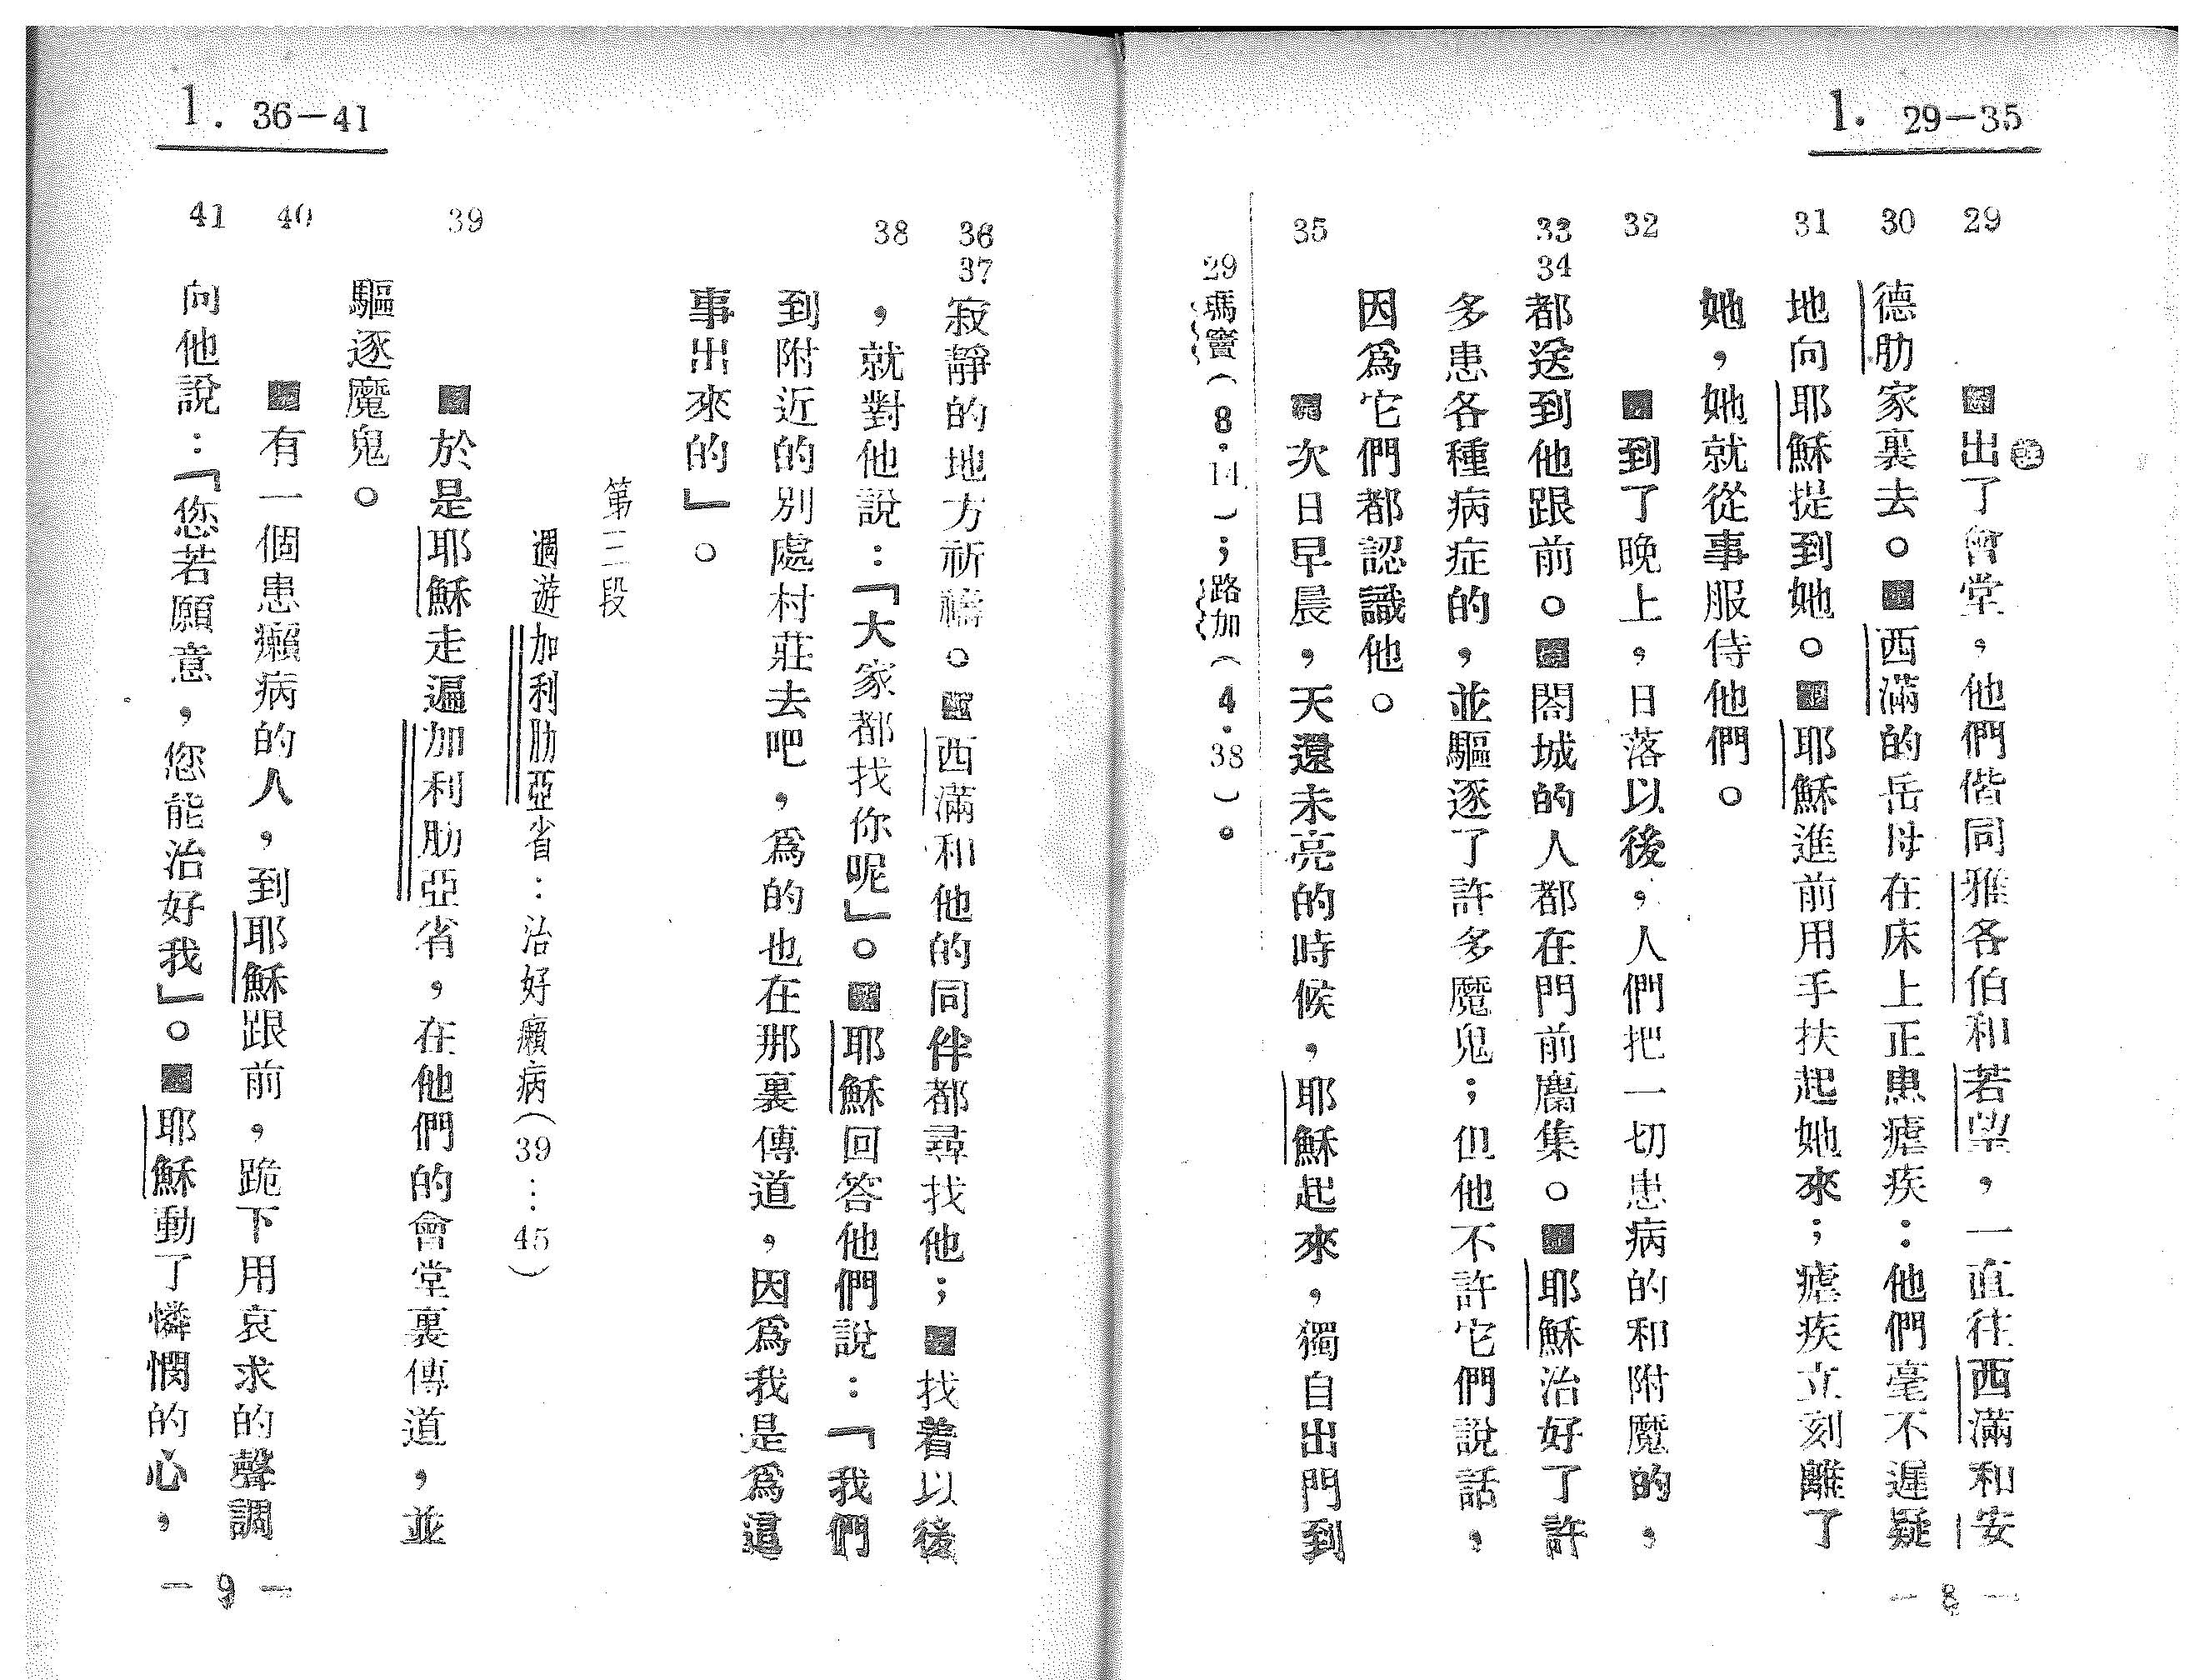 1. 29—35
29 30 31 32 33 34 35
■出了會堂，他們偕同雅各伯和若望，一直往西滿和安
德肋家裏去。■西滿的岳母在床上正患瘧疾：他們毫不遲疑
地向耶穌提到她。■耶穌進前用手扶起她來；瘧疾立刻離了
她，她就從事服侍他們。
■到了晚上，日落以後，人們把一切患病的和附魔的，
都送到他跟前。■閤城的人都在門前麕集。■耶穌治好了許
多患各種病症的，並驅逐了許多魔鬼；但他不許它們說話，
因爲它們都認識他。
■次日早晨，天還未亮的時候，耶穌起來，獨自出門到
29瑪竇（8．14）；路加（4．38）。
— 8 —
1. 36—41
36 37 38 39 40 41
寂靜的地方祈禱。■西滿和他的同伴都尋找他；■找着以後
，就對他說：「大家都找你呢」。■耶穌回答他們說：「我們
到附近的別處村莊去吧，爲的也在那裏傳道，因爲我是爲這
事出來的」。
第三段
週遊加利肋亞省：治好癩病（39…45）
■於是耶穌走遍加利肋亞省，在他們的會堂裏傳道，並
驅逐魔鬼。
■有一個患癩病的人，到耶穌跟前，跪下用哀求的聲調
向他說：「您若願意，您能治好我」。■耶穌動了憐憫的心，
— 9 —